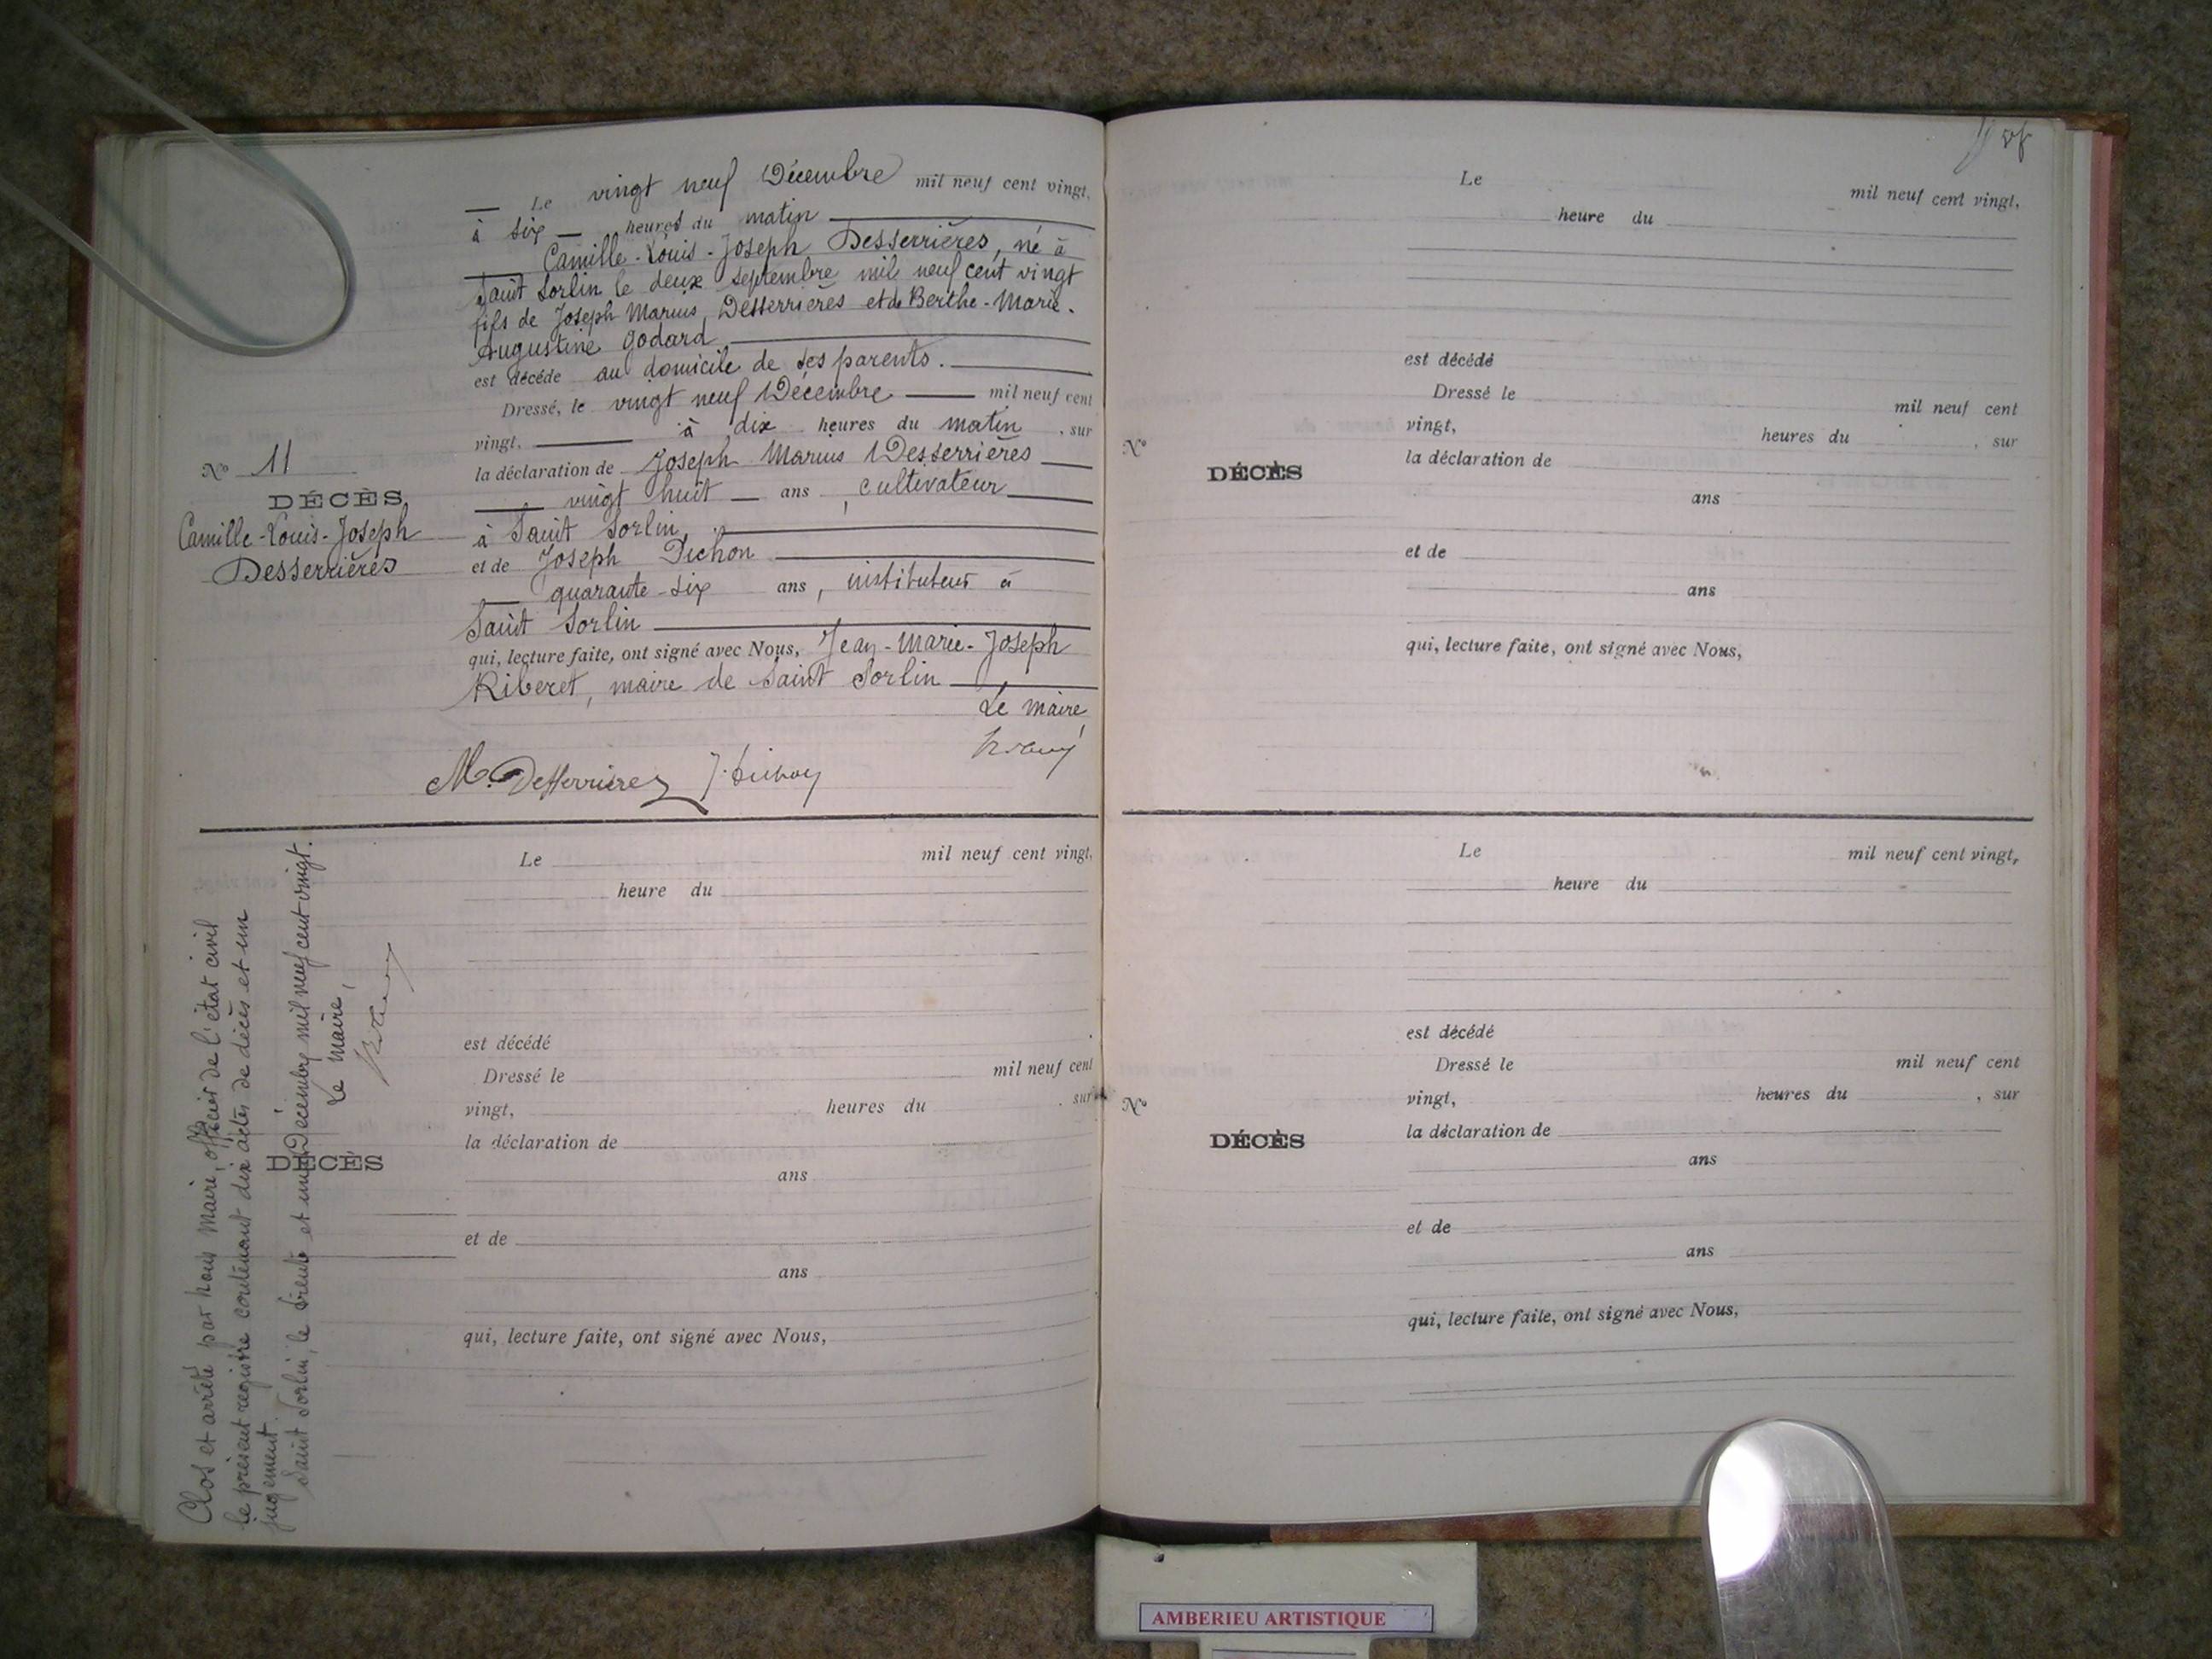 Le vingt neuf Décembre mil neuf cent vingt,
à six heures du matin
Camille-Louis-Joseph Desserrières, né à
Saint Sorlin le deux septembre mil neuf cent vingt
fils de Joseph Marius Desserrières et de Berthe-Marie-
Augustine Godard
est décédé au domicile de ses parents.
Dressé, le vingt neuf Décembre mil neuf cent
vingt, à dix heures du matin, sur
la déclaration de Joseph Marius Desserrières
vingt huit ans, cultivateur
à Saint Sorlin
et de Joseph Dichon
quarante-six ans, instituteur à
Saint Sorlin
qui, lecture faite, ont signé avec Nous, Jean-Marie-Joseph
Riberet, maire de Saint Sorlin
Le maire
M. Desserrières
Nº 11
DÉCÈS
Camille-Louis-Joseph
Desserrières
Le mil neuf cent vingt,
heure du
est décédé
Dressé le mil neuf cent
vingt, heures du , sur
la déclaration de
ans
et de
ans
qui, lecture faite, ont signé avec Nous,
DÉCÈS
Clos et arrêté par nous maire, officier de l'état civil
le présent registre contenant dix actes de décès et un
jugement.
Saint Sorlin, le trente et un Décembre mil neuf cent vingt.
Le maire,
Le mil neuf cent vingt,
heure du
est décédé
Dressé le mil neuf cent
vingt, heures du , sur
Nº
DÉCÈS
la déclaration de
ans
et de
ans
qui, lecture faite, ont signé avec Nous,
Le mil neuf cent vingt,
heure du
est décédé
Dressé le mil neuf cent
vingt, heures du , sur
Nº
DÉCÈS
la déclaration de
ans
et de
ans
qui, lecture faite, ont signé avec Nous,
AMBERIEU ARTISTIQUE